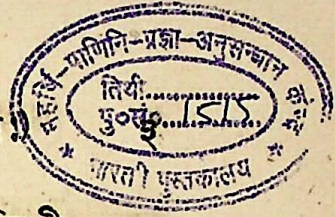 महर्षि-पाणिनि-प्रज्ञा-अनुसन्धान
तिथी..............
पु०सं०.............1515
* भारती पुस्तकालय *